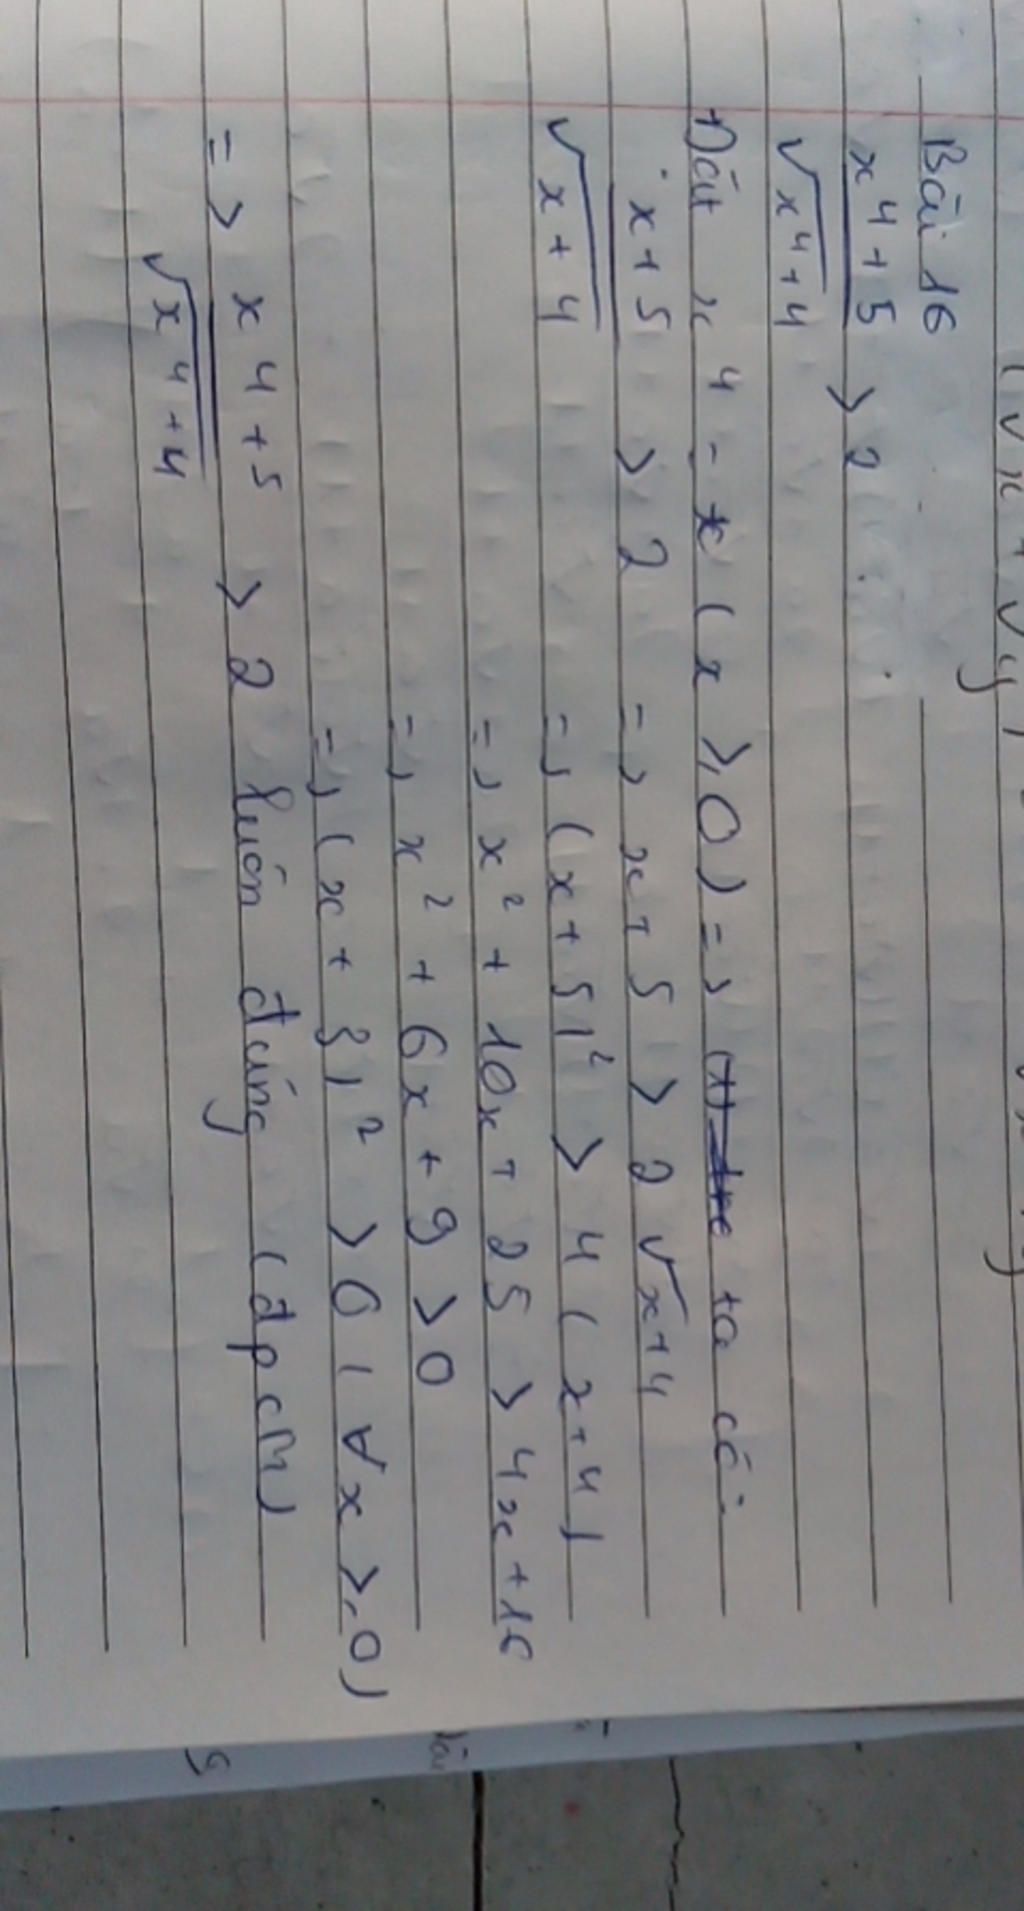 Bài 16
x⁴ + 5 / √x⁴ + 4 > 2
Đặt x⁴ = x ( x ≥ 0 ) => ta có:
x + 5 / √x + 4 > 2 => x + 5 > 2 √x + 4
=> ( x + 5 )² > 4 ( x + 4 )
=> x² + 10x + 25 > 4x + 16
=> x² + 6x + 9 > 0
=> ( x + 3 )² > 0 ( ∀x ≥ 0 )
=> x⁴ + 5 / √x⁴ + 4 > 2 luôn đúng (đpcm)